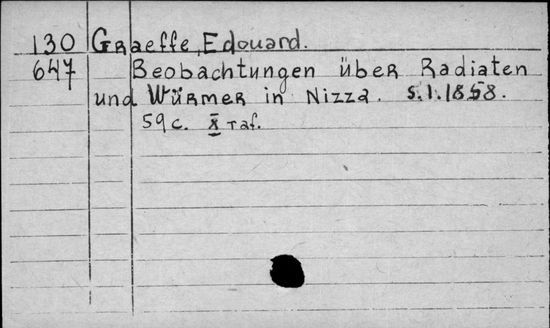 130 Graeffe, Edouard.
647 Beobachtungen über Radiaten
und Würmer in Nizza. s.l. 1858.
59 c. X Taf.